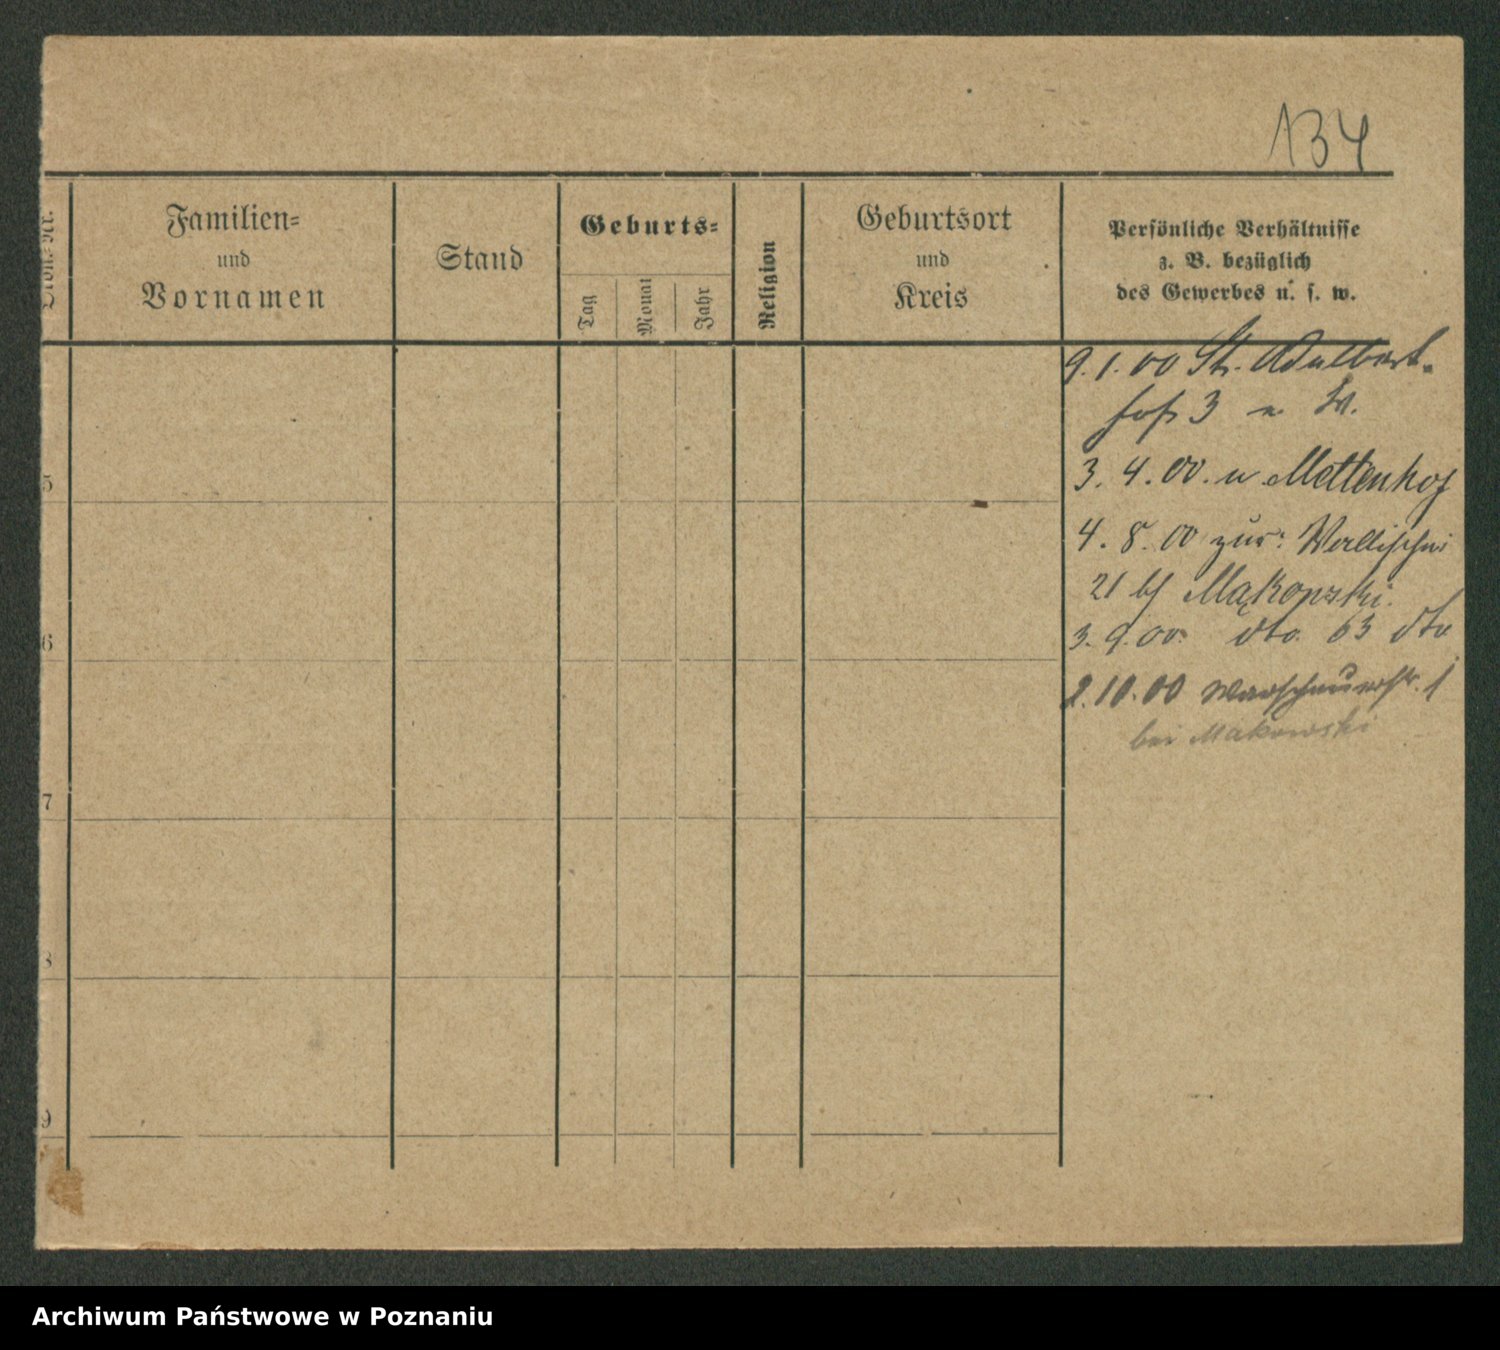 134
Nr.
Familien-
und
Vornamen
Stand
Geburts-
Tag
Monat
Jahr
Religion
Geburtsort
und
Kreis
Persönliche Verhältnisse
z. B. bezüglich
des Gewerbes u. s. w.
9. 1. 00 St. Adalbert-
3
3. 4. 00. n Mettenhof
5
4. 8. 00 zur: Wallischei
21 bei Makowski.
3. 9. 00. dto. 63 dto
6
2. 10. 00 Warschauerstr. 1
bei Makowski
7
8
9
Archiwum Państwowe w Poznaniu